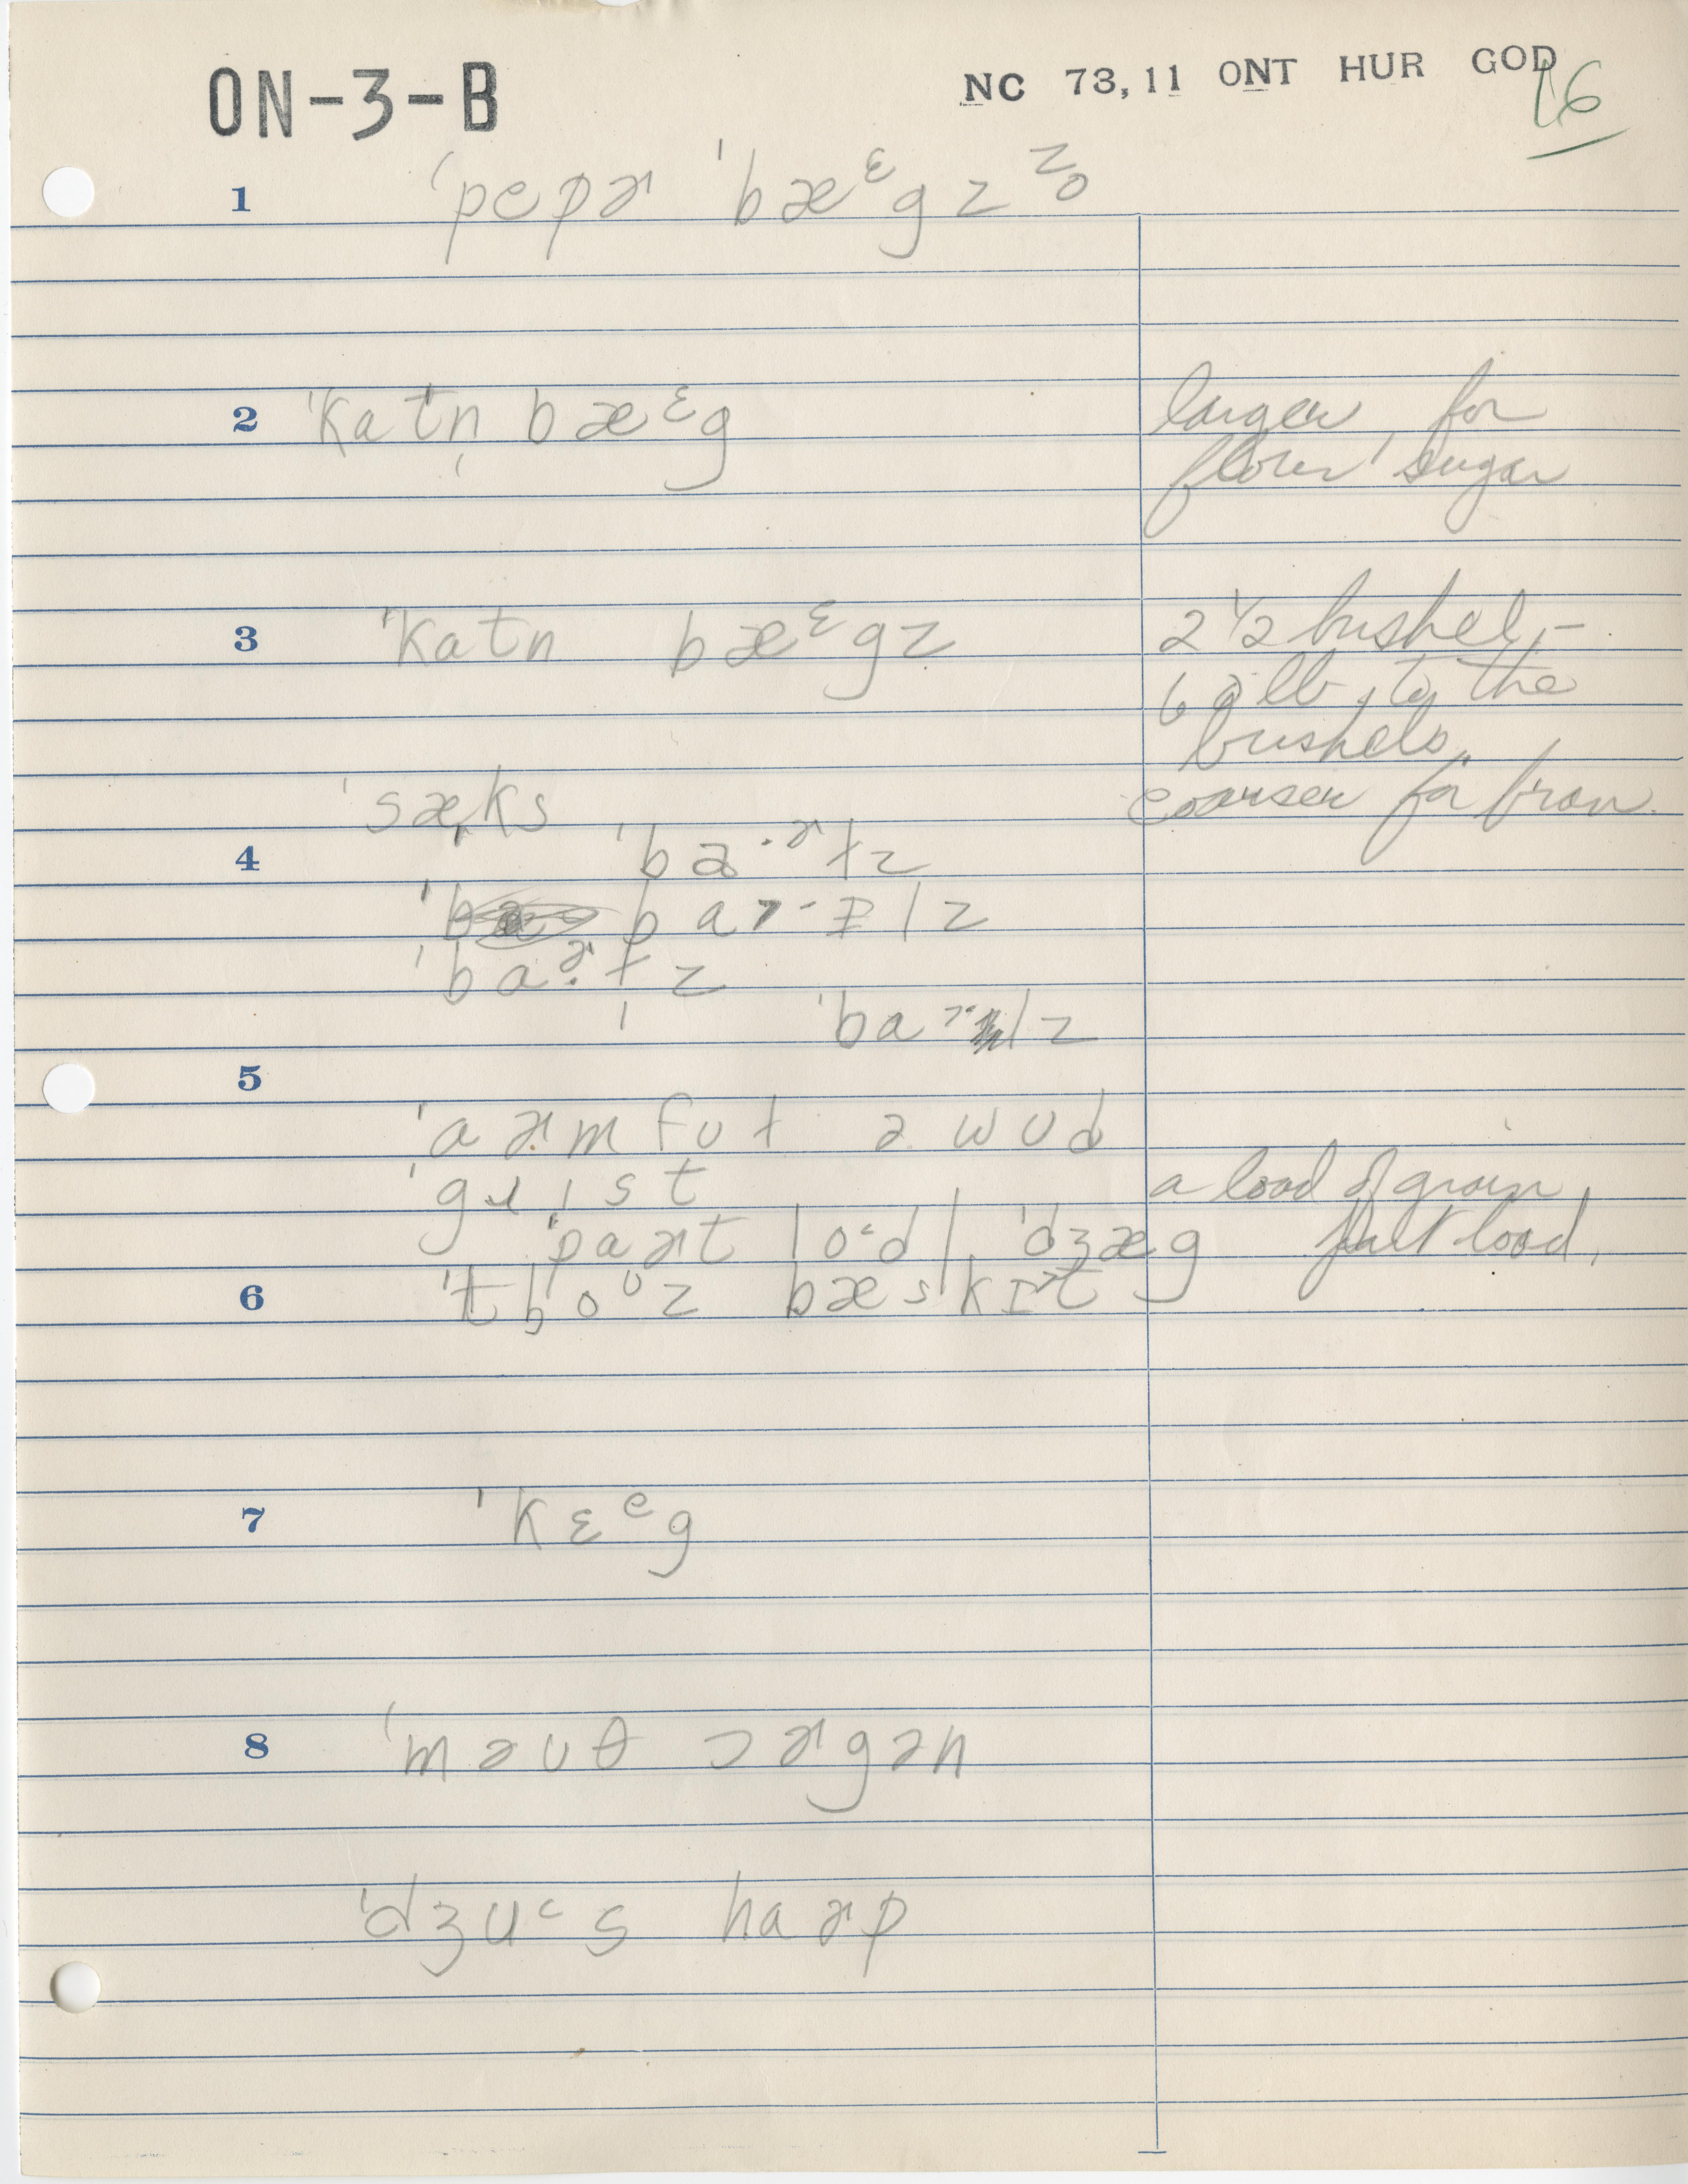 ON-3-B
NC 73,11 ONT HUR GOD
16
1 ˈpepɚ ˈbæᵋgz
2 ˈkatn̩ bæᵋg
larger, for
flour, sugar
3 ˈkatn bæᵋgz
2 ½ bushel, –
60 lb, to the
bushels,
ˈsæks
coarser for bran.
4 ˈba·ɚɫz
ˈbar·ɪlz
ˈbaɚɫz
ˈbarlz
5
ˈaɚmfʊɫ ə wʊd
ˈgɹɪst
a load of grain
ˈpaɚt lo·d | ˈdʒæg
part load,
6 ˈtʰoᶷz bæskɪt
7 ˈkɛᵉg
8 ˈməʊθ ɔɚgən
ˈdʒuˑs haɚp